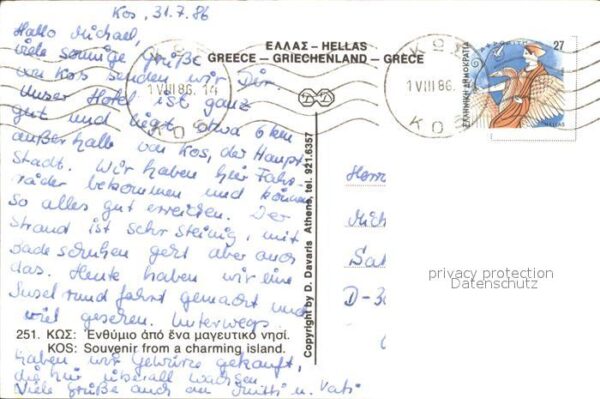 Kos, 31.7.86
Hallo Michael,
viele sonnige Grüße
aus Kos senden wir Dir.
Unser Hotel ist ganz
gut und liegt etwa 6 km
außerhalb von Kos, der Haupt
Stadt. Wir haben hier Fahr
räder bekommen und können
so alles gut erreichen. Der
Strand ist sehr steinig, mit
Badeschuhen geht aber auch
das. Heute haben wir eine
Inselrundfahrt gemacht und
viel gesehen. Unterwegs
haben wir Gewürze gekauft,
die hier überall wachsen.
Viele Grüße auch an Mutti u. Vati
ΕΛΛΑΣ – HELLAS
GREECE – GRIECHENLAND – GRÈCE
ΚΩΣ
1 VIII 86. 14
KOS
ΚΩΣ
1 VIII 86.
KOS
27
ΕΛΛΗΝΙΚΗ ΔΗΜΟΚΡΑΤΙΑ
HELLAS
Copyright by D. Davaris Athens, tel. 921.6357
251. ΚΩΣ: Ἐνθύμιο ἀπό ἕνα μαγευτικό νησί.
KOS: Souvenir from a charming island.
Herrn
Mich
D-30
privacy protection
Datenschutz